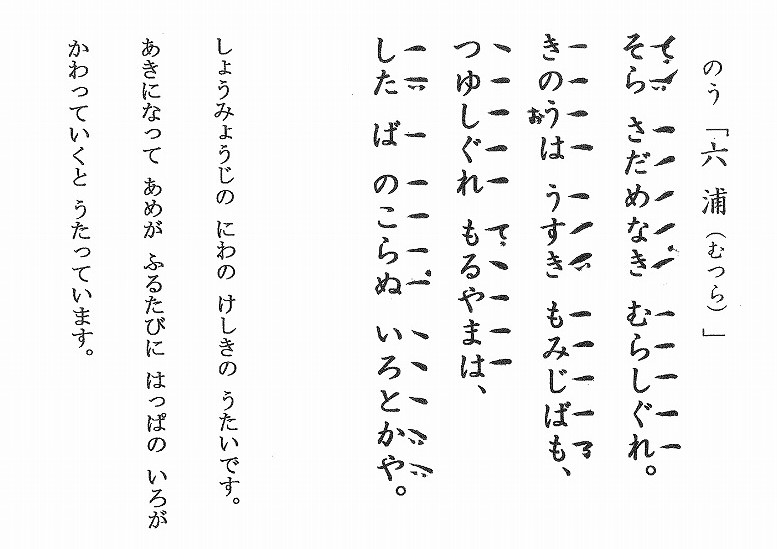 のう「六浦（むつら）」
そら さだめなき むらしぐれ。
きのうは うすき もみじばも、
お
つゆしぐれ もるやまは、
したば のこらぬ いろとかや。
しょうみょうじの にわの けしきの うたいです。
あきになって あめが ふるたびに はっぱの いろが
かわっていくと うたっています。